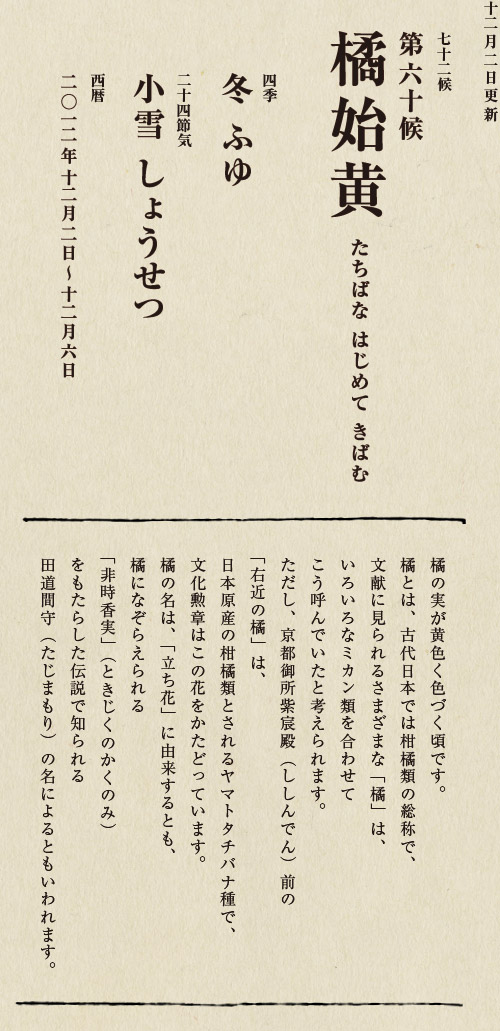 十二月二日更新
七十二候
第六十候
橘始黄 たちばな はじめて きばむ
四季
冬 ふゆ
二十四節気
小雪 しょうせつ
西暦
二〇一二年十二月二日〜十二月六日
橘の実が黄色く色づく頃です。
橘とは、古代日本では柑橘類の総称で、
文献に見られるさまざまな「橘」は、
いろいろなミカン類を合わせて
こう呼んでいたと考えられます。
ただし、京都御所紫宸殿（ししんでん）前の
「右近の橘」は、
日本原産の柑橘類とされるヤマトタチバナ種で、
文化勲章はこの花をかたどっています。
橘の名は、「立ち花」に由来するとも、
橘になぞらえられる
「非時香実」（ときじくのかくのみ）
をもたらした伝説で知られる
田道間守（たじまもり）の名によるともいわれます。